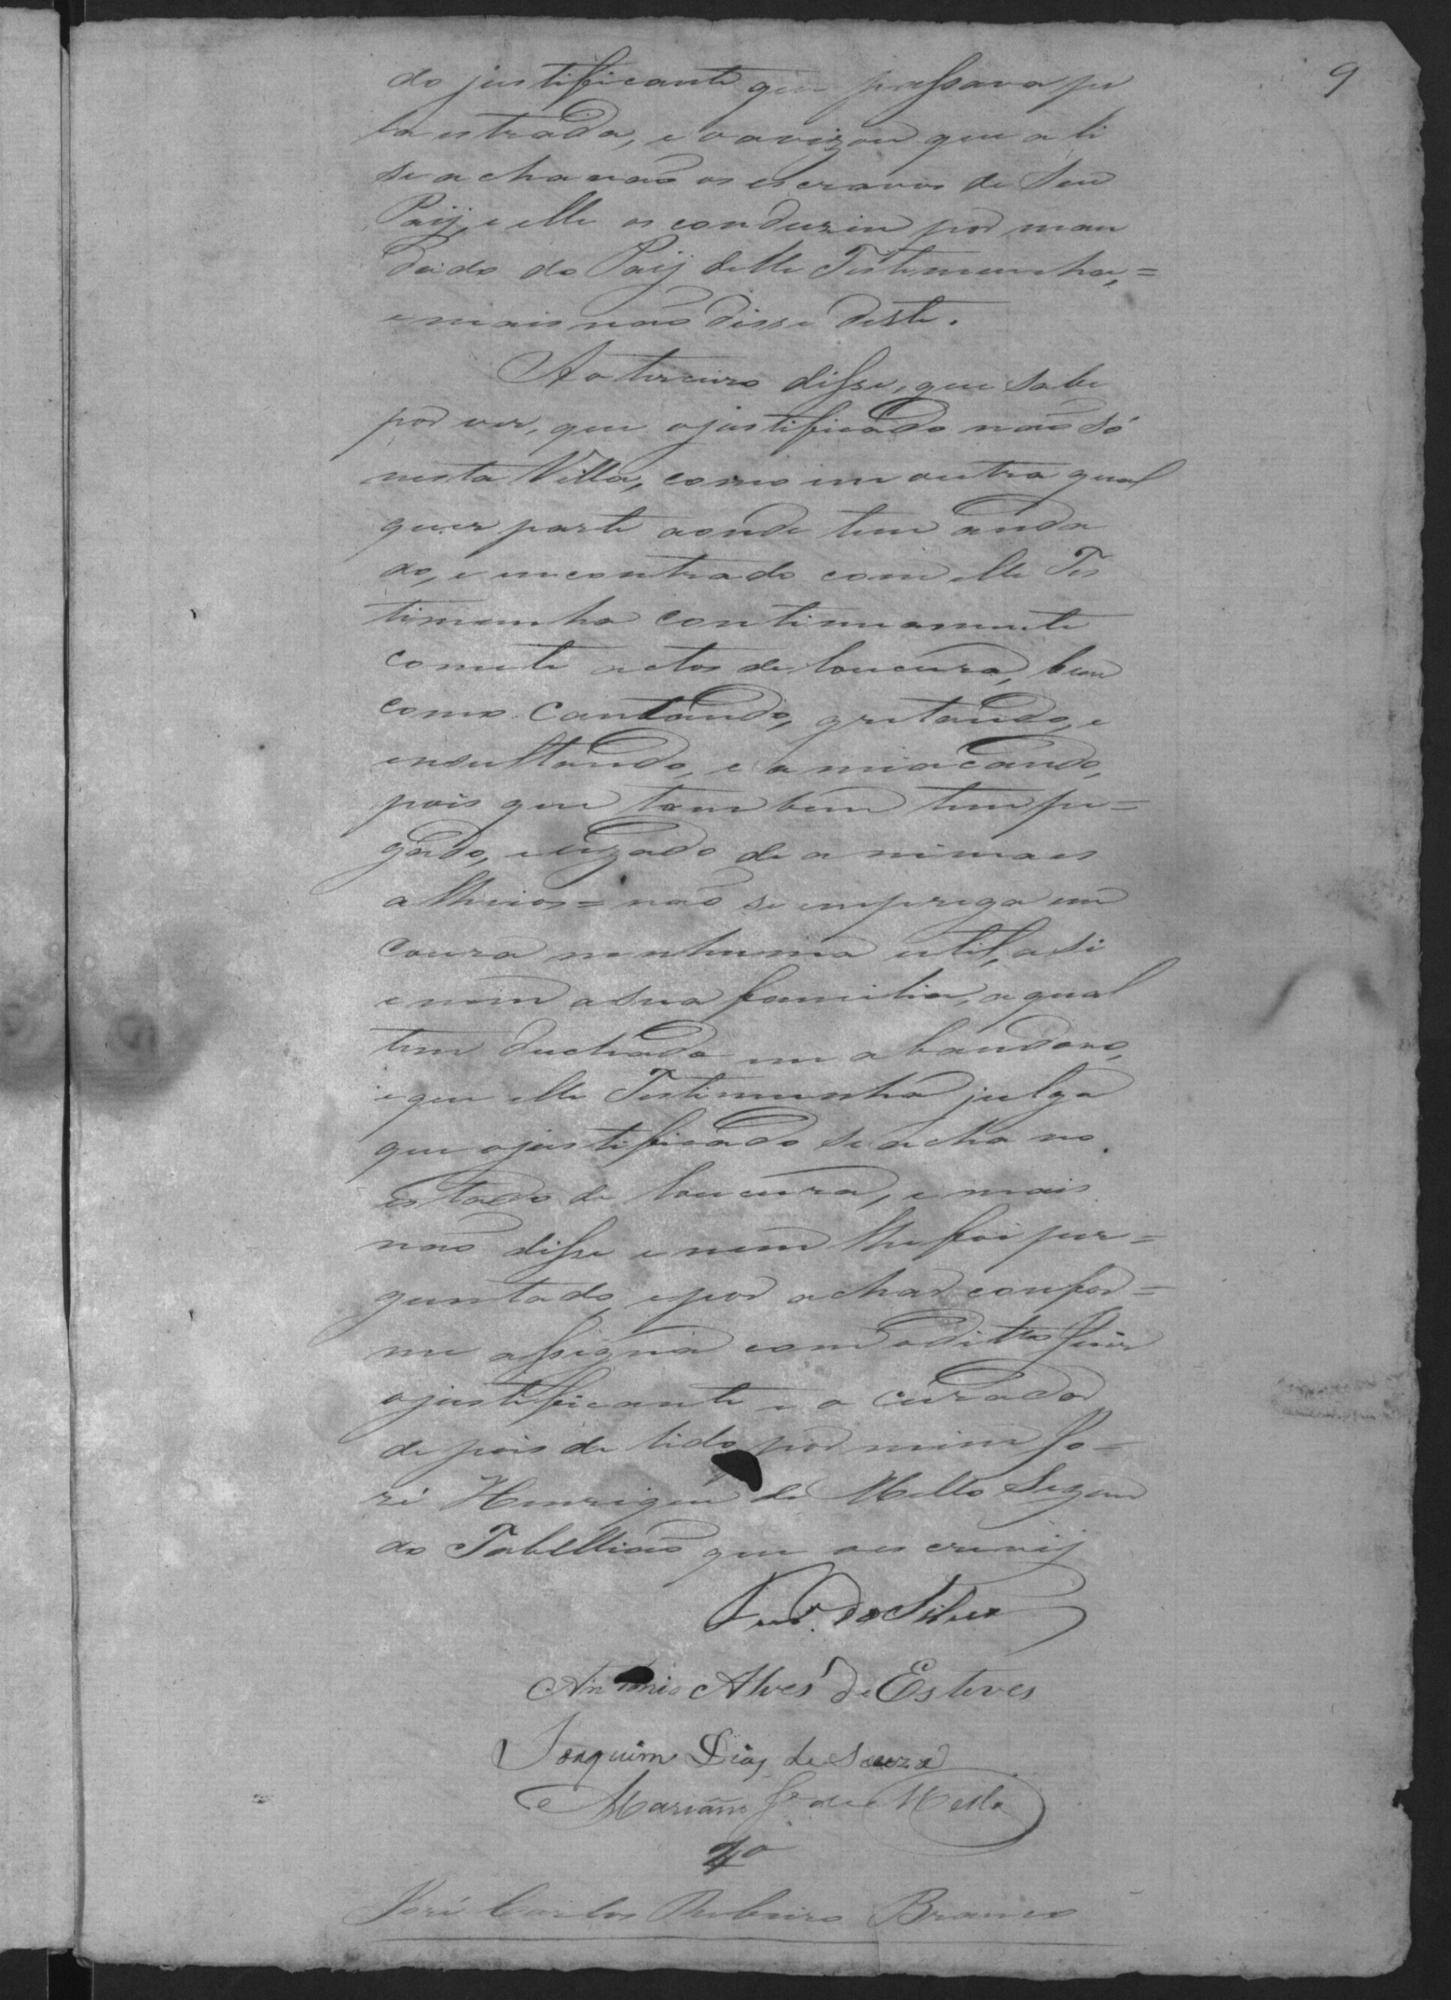 9
do justificante que passava pe
la estrada, e o avizou que ali
se achavaõ os escravos de Seu
Paij, e elle os conduziu por man
dado do Paij delle Testemunha, =
e mais naõ disse deste.
Ao terceiro disse, que sabe
por ver, que o justificado naõ só
nesta Villa, como em outra qual
quer parte aonde tem anda
do, e encontrado com elle Tes
timunha continuamente
comete actos de loucura, bem
como cantando, gritando, e
insultando, e amiaçando,
pois que tambem tem pe=
gado, e uzado de animaes
alheios = naõ se emprega em
couza nenhuma util, a si
e nem a sua familia, a qual
tem deichado em abandono,
e que elle Testimunha julga
que o justificado se acha no
estado de loucura, e mais
naõ disse e nem lhe foi per=
guntado, e por achar confor=
me assigna com o ditto Juiz
o justificante e o curador
depois de lido por mim Jo=
zé Henriques de Mello Segun
do Tabelliaõ que o escrevij
da Silva
Antonio Alves de Esteves
Joaquim Dias de Souza
Mariano Je de Mello
4º
José Carlos Ribeiro Branco